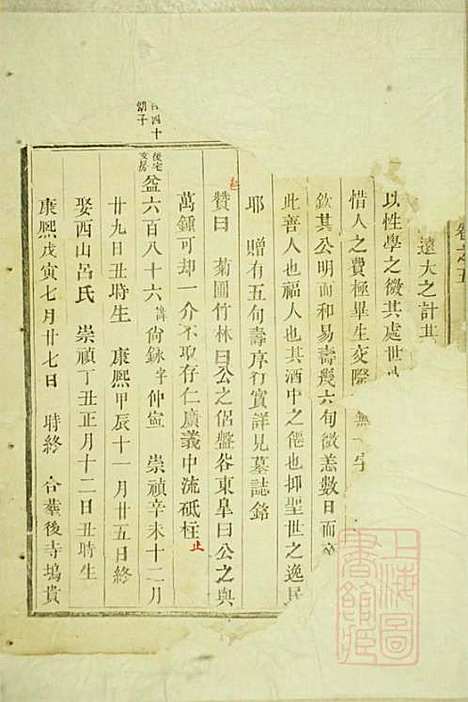 卷之五
遠大之計其
以性學之微其處世
惜人之費極畢生交際 無一字
欽其公明而和易壽幾六旬微恙數日而卒
此善人也福人也其酒中之僊也抑聖世之逸民
耶 贈有五旬壽序行實詳見墓誌銘
贊曰 菊圃竹林曰公之侶盤谷東皐曰公之與
萬鍾可却一介不取存仁廣義中流砥柱
止
四十
益六百八十六 諱尚銶字仲宣 崇禎辛未十二月
廿九日丑時生 康熙甲辰十一月廿五日終
娶西山呂氏 崇禎丁丑正月十二日丑時生
康熙戊寅七月廿七日 時終 合塟後寺塢貴
上海圖書館藏